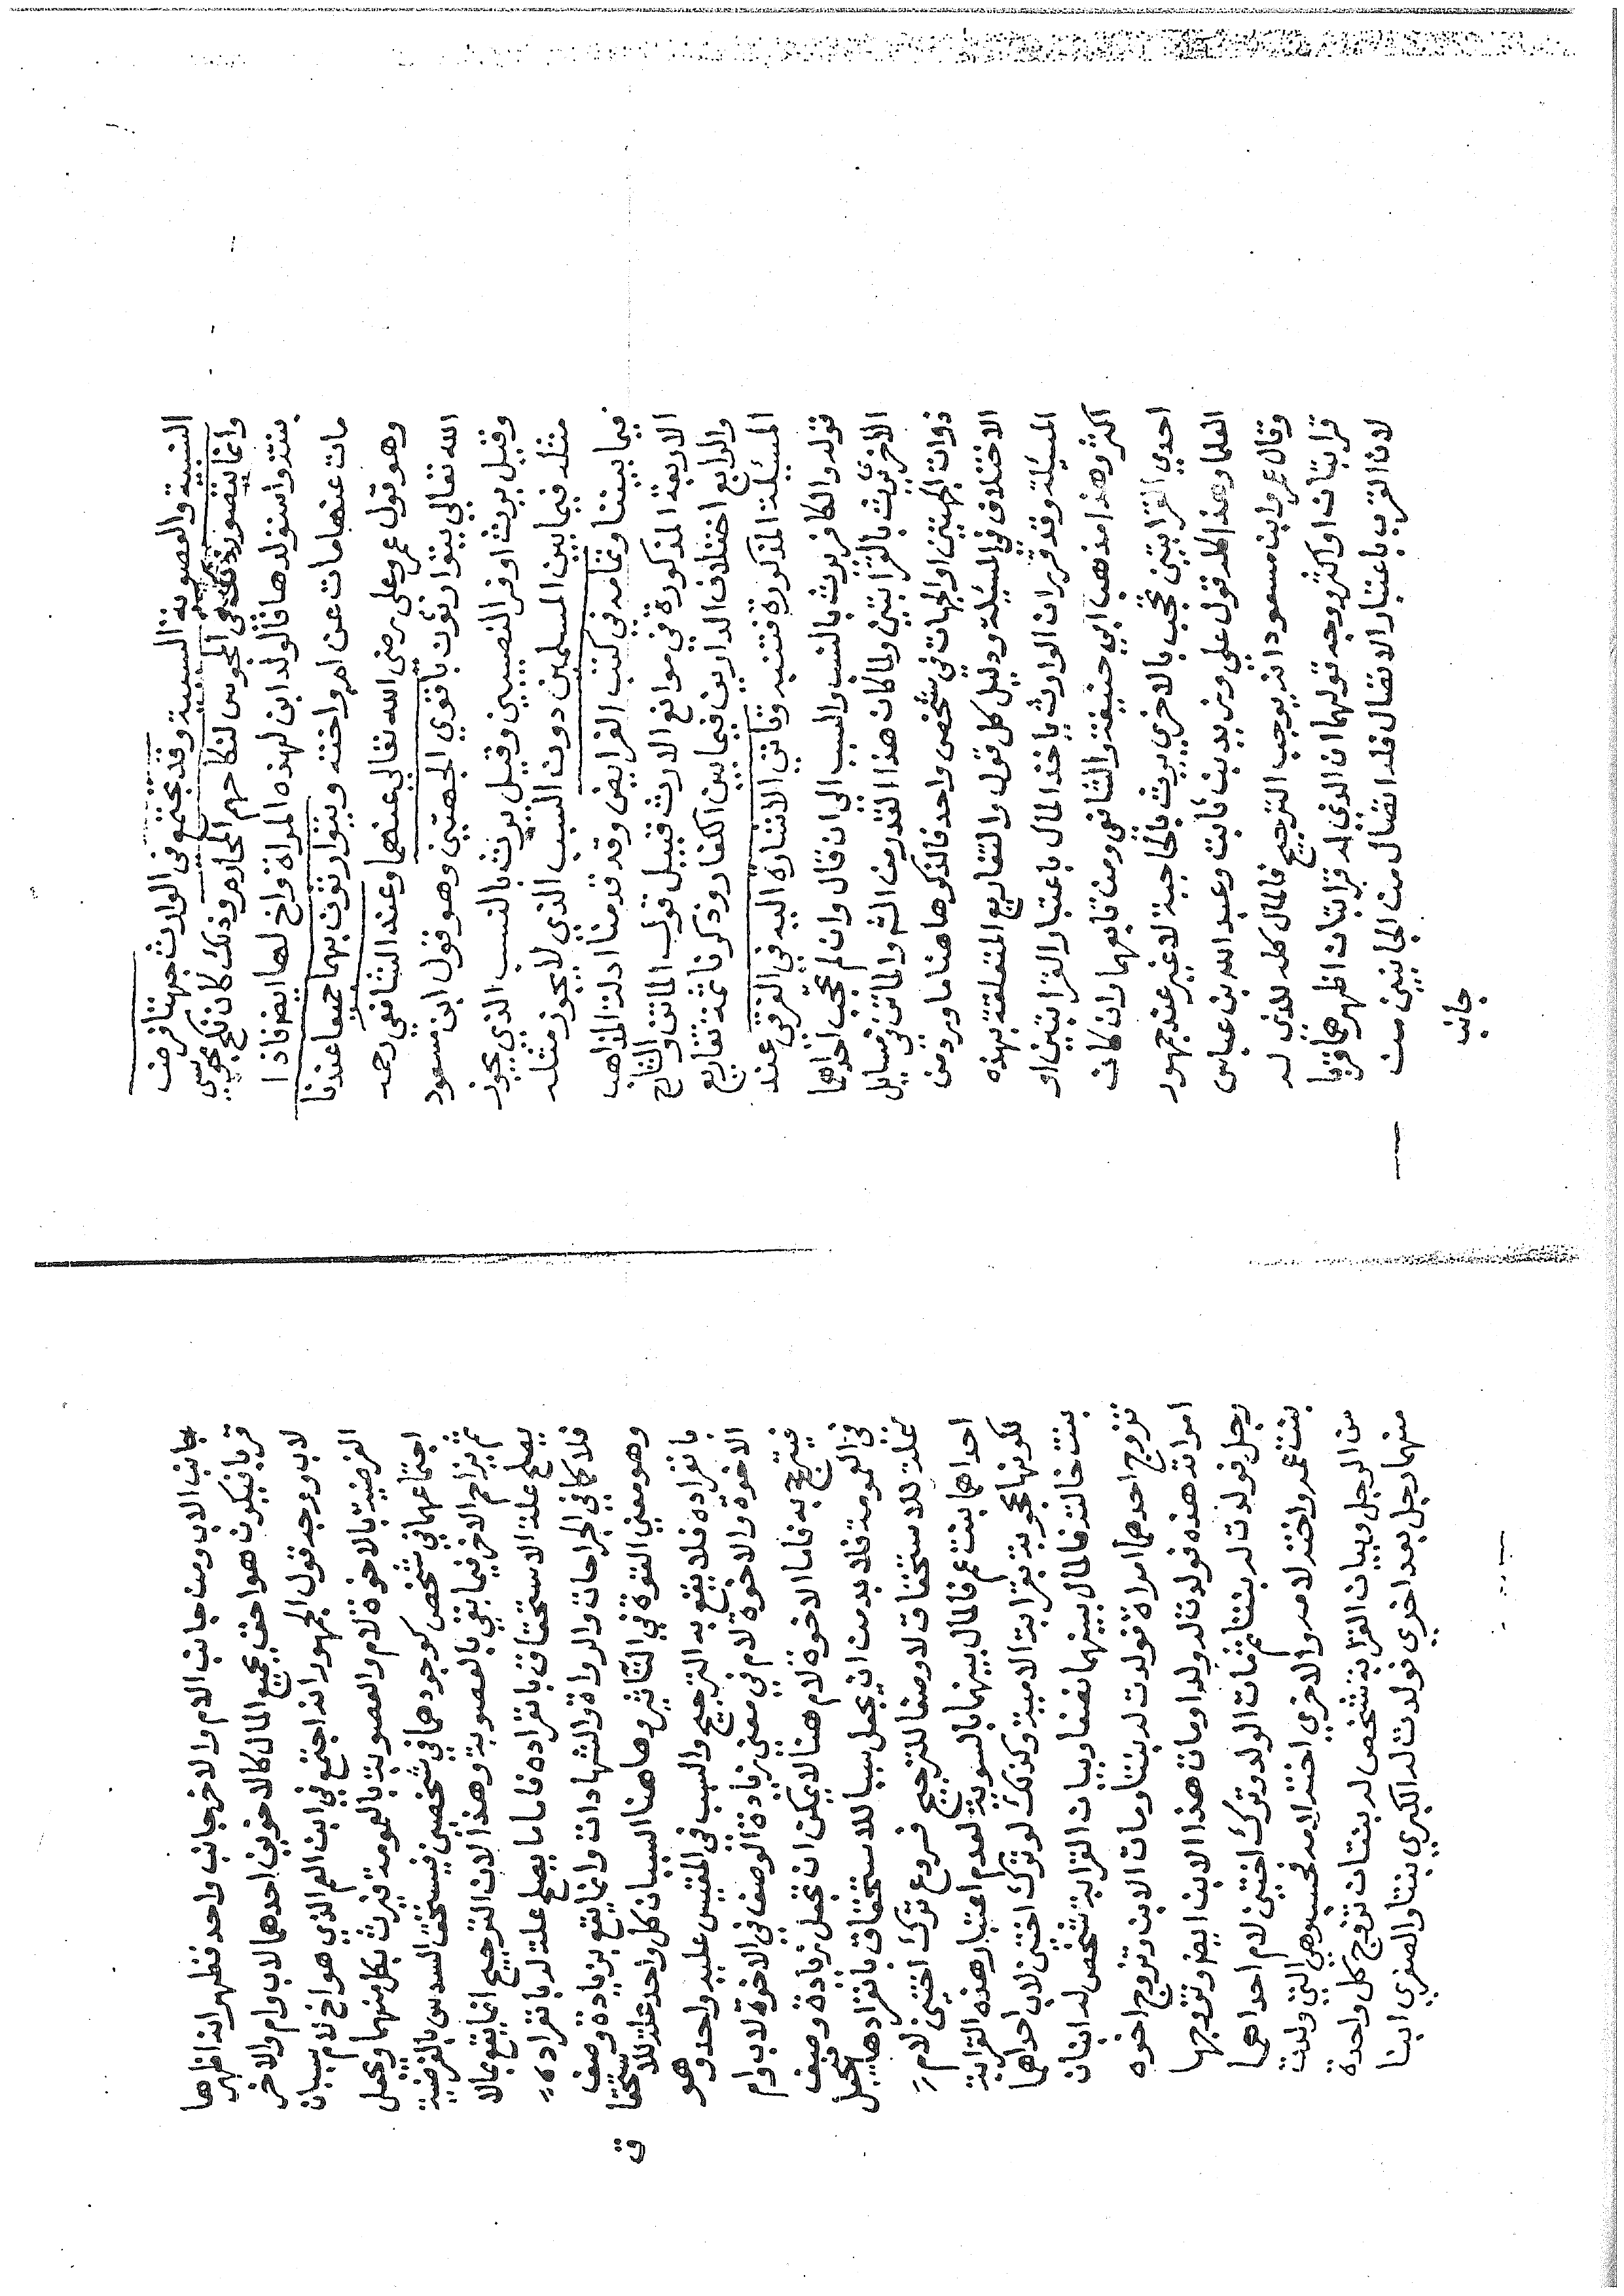 النسبية والعصوبة السببية وقد تجتمع في الوارث جهتا فرض
وانما يتصور ذلك في المجوس لنكاحهم المحارم وذلك كان نكح مجوسي
بنته واستولدها فالولد ابن لهذه المراة واخ لها ايضا فاذا
مات عنها مات عن ام واخته ويتوارثون بهما جميعا عندنا
وهو قول عمر وعلي رضي الله تعالي عنهما وعند الشافعي رحمه
الله تعالي يتوارثون باقوي الجهتين وهو قول ابن مسعود
وقيل يرث اوفر النصيبين وقيل يرث بالنسب الذي يجوز
مثله فيما بين المسلمين دون النسب الذي لا يجوز مثله
فيما بيننا وتمامه في كتب الفرايض وقد قدمنا ادلة المذاهب
الاربعة المذكورة في موانع الارث قبيل قول الماتن والشارح
والرابع اختلاف الدارين فيما بين الكفار وذكرنا ثمة تفاريع
المسئلة المذكورة فتنبه وتاتي الاشارة اليه في الغرقي عند
قوله والكافر يرث بالنسب والسبب الي ان قال وان لم يحجب احدهما
الاخر يرث بالقرابتين ولما كان هذا القدر من الشم والماتن في مسايل
ذوات الجهتين او الجهات في شخص واحد فالنذكر هاهنا ما ورد من
الاختلاف في المسئلة ودليل كل قول والتفاريع المتعلقة بهذه
المسئلة وقد قرر ان الوارث ياخذ المال باعتبار القرابتين او
اكثر وهذا مذهب ابي حنيفة والشافعي ومن تابعهما وان كان
احدي القرابتين تحجب بالاخري يرث بالحاجبة لا غير عند جمهور
العلما وهذا كله قول علي وزيد بن ثابت وعبد الله بن عباس
وقال عمر وابن مسعود انه يوجب الترجيح فالمال كله للذي له
قرابتان او اكثر وجه قولهما ان الذي له قرابتان اظهرهما قربا
لان القرب باعتبار الاتصال فله اتصال من الجانبين من
جانب
بجانب الاب ومن جانب الام والاخر جانب واحد فظهر انه اظهرها
قربا فيكون هو احق بجميع المال كالاخوين احدهما لاب وام والاخر
لاب وجه قول الجمهور انه اجتمع في ابن العم الذي هو اخ لام سببان
الفرضية بالاخوة لام والعصوبة بالعمومة فيرث بكل منهما ويجعل
اجتماعهما في شخص كوجودهما في شخصين فيستحق السدس بالفرضية
ثم يزاحم الاخر فيما بقي بالعصوبة وهذا لان الترجيح انما يقع بما لا
يصلح علة الاستحقاق بانفراده فاما ما يصلح علة له بانفراده
فلا كما في الجراحات والرواة والشهادات وانما يقع بزيادة وصف
وهو معني القوة في التاثير وهاهنا السببان كل واحد علة للاستحقاق
بانفراده فلا يقع به الترجيح والسبب في المقيس عليه واحد وهو
الاخوة والاخوة لام في معني زيادة الوصف في الاخوة لاب وام
فيترجح به فاما الاخوة لام هنا لا يمكن ان تجعل زيادة وصف
في العمومة فلا بد من ان يجعل سببا للاستحقاق بانفرادها فيجعل
علة للاستحقاق لا وصفا للترجيح فروع ترك اختين لام
احداهما بنت عم فالمال بينهما بالسوية لعدم اعتبار هذه القرابة
لكونها محجوبة بقرابة الامية وكذلك لو ترك اختين لاب احداهما
بنت خالته فالمال بينهما نصفا وبيان القرابة شخص له ابنان
تزوج احدهما امراة فولدت له بنتا ومات الابن وتزوج اخوه
امراته هذه فولدت له ولدا ومات هذا الابن ايضا وتزوجها
رجل فولدت له بنتا ثم مات الولد وترك اختين لام احداهما
بنت عمه واخته لامه والاخري اخته لامه فحسب وهي التي ولدت
من الرجل وبيان القرابة شخص له بنتان تزوج كل واحدة
منهما رجل بعد اخري فولدت له الكبري بنتا والصغري ابنا